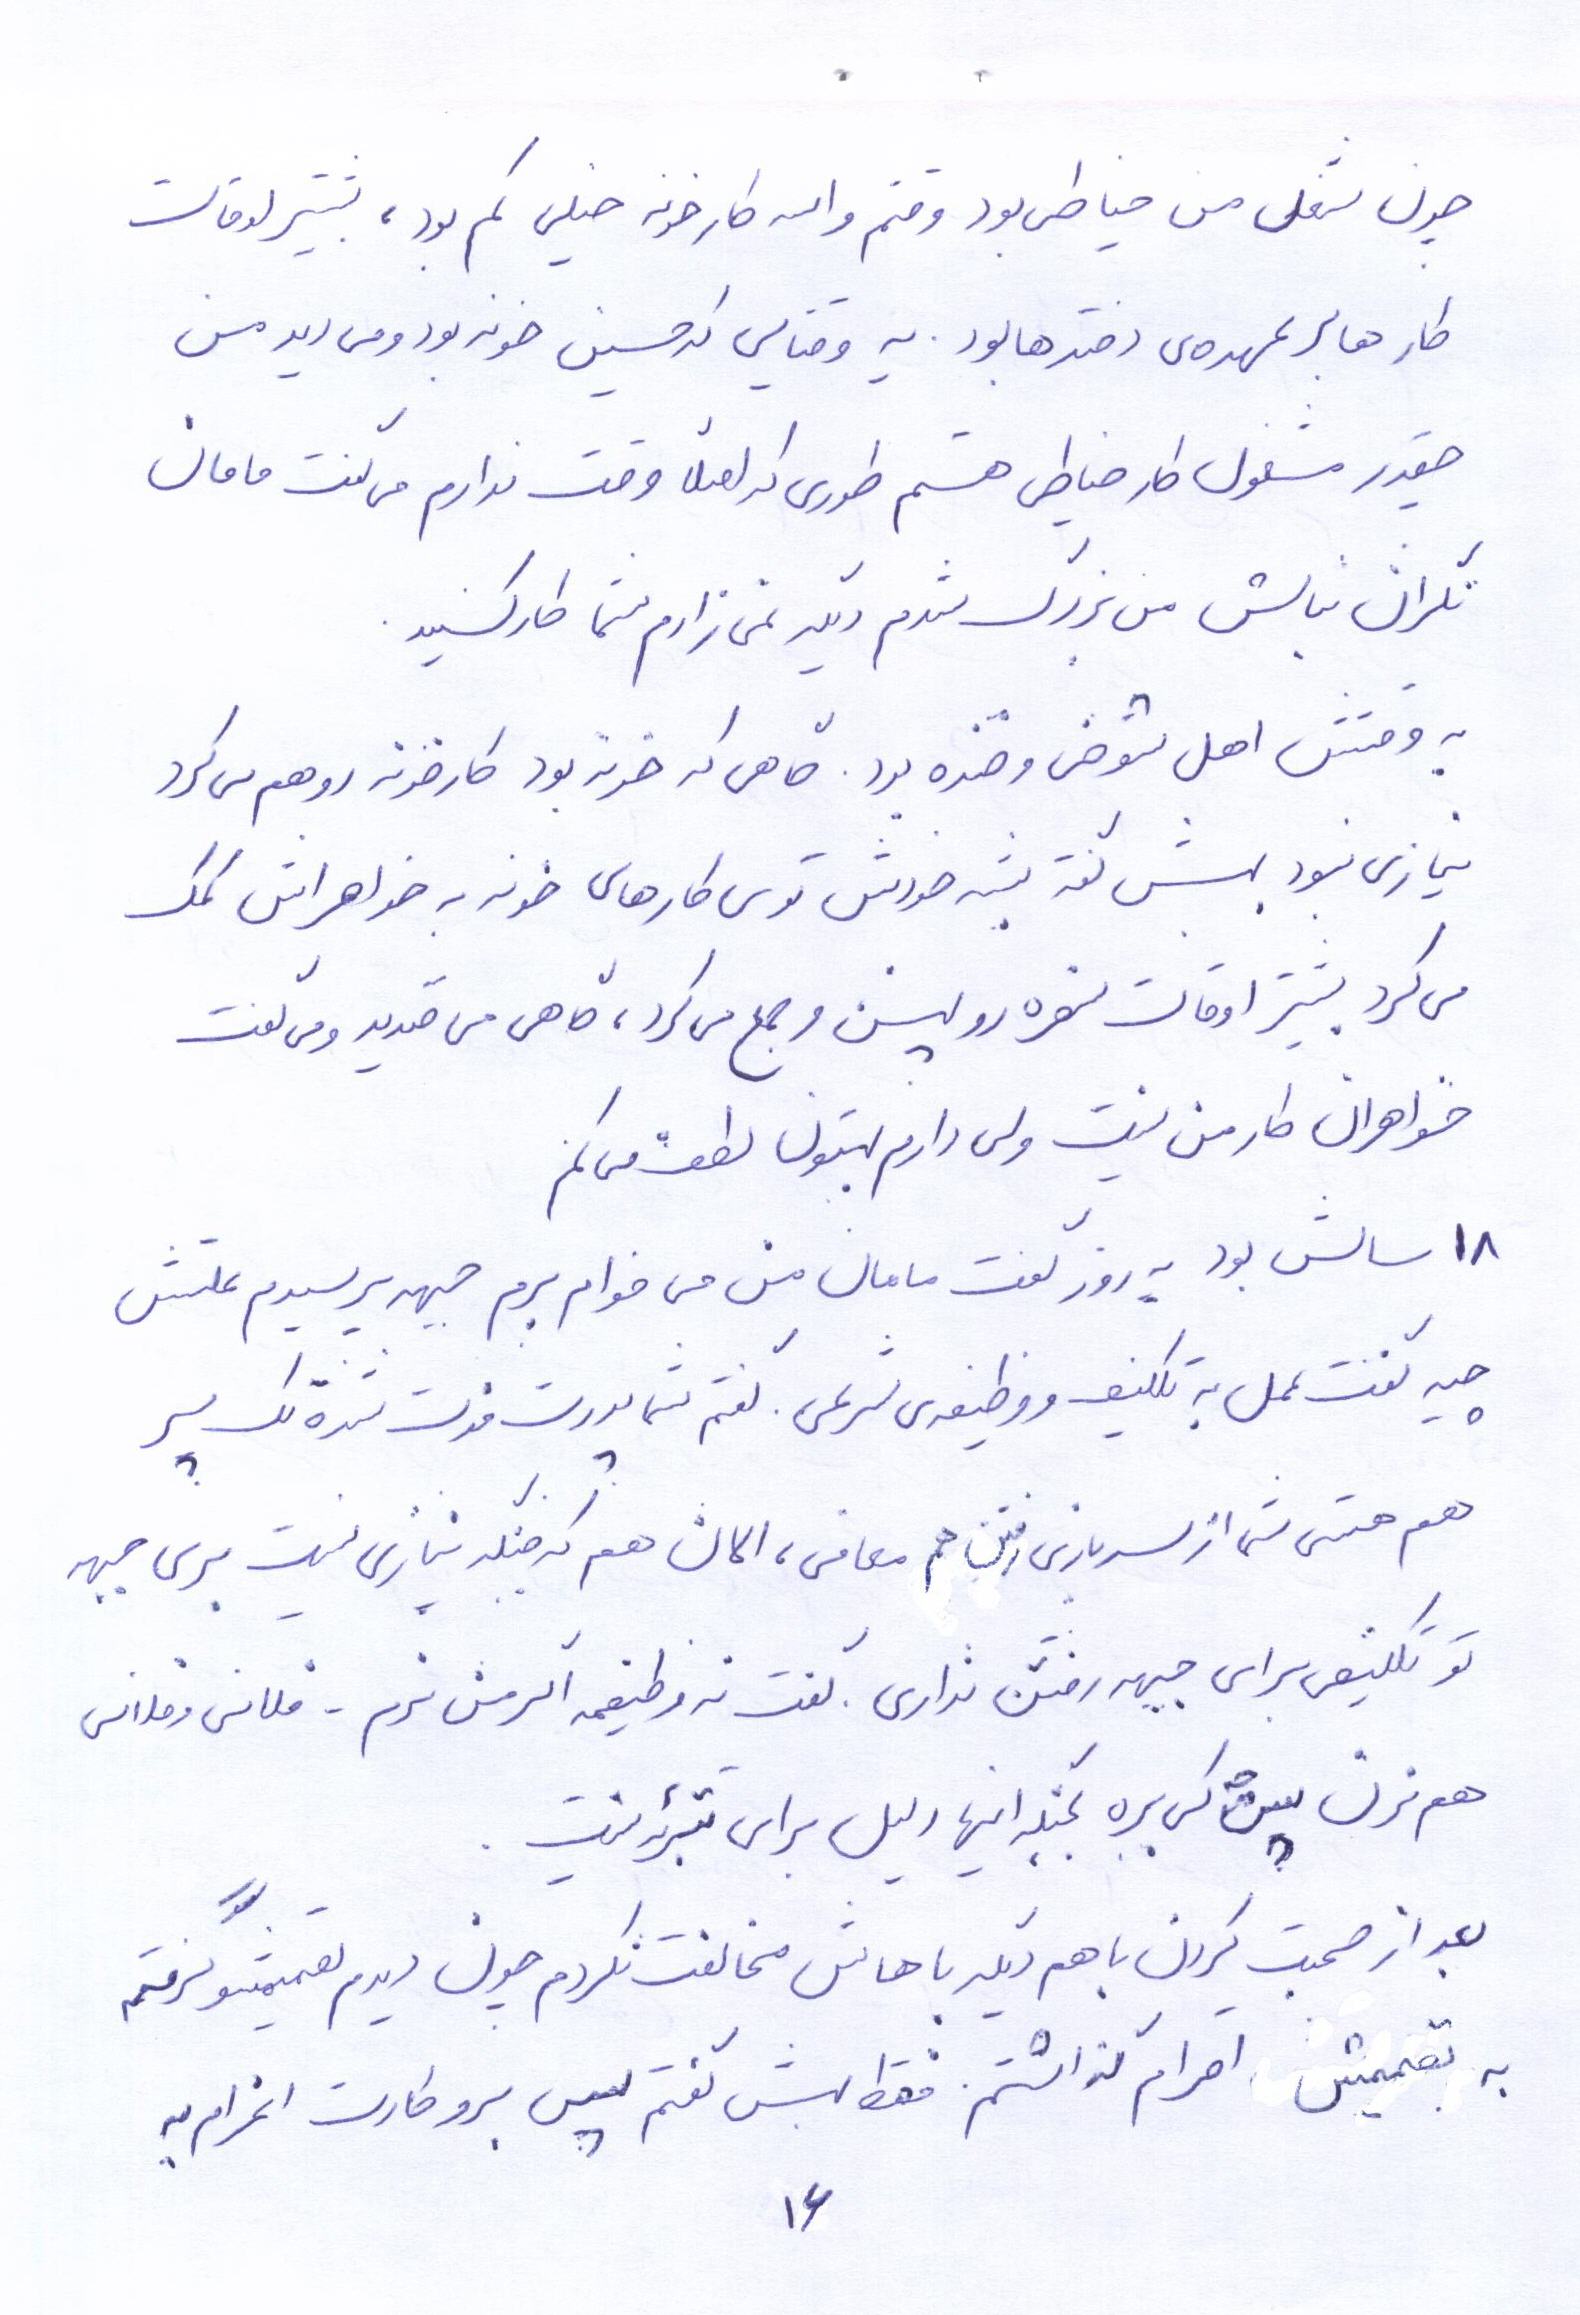 چون شغل من خیاطی بود وقتم واسه کارخونه خیلی کم بود، بیشتر اوقات
کارها بر عهده‌ی دخترها بود. یه وقتایی که حسین خونه بود و می دید من
چقدر مشغول کار خیاطی هستم طوری که اصلاً وقت ندارم می گفت مامان
نگران نباش من بزرگ شدم دیگه نمی زارم شما کار کنید.
به وقتش اهل شوخی و خنده بود. گاهی که خونه بود کارخونه رو هم می کرد
نیازی نبود بهش گفته بشه خودش توی کارهای خونه به خواهراش کمک
می کرد بیشتر اوقات سفره رو پهن و جمع می کرد، گاهی می خندید و می گفت
خواهران کار من نیست ولی دارم بهتون لطف می کنم
۱۸ سالش بود یه روز گفت مامان من می خوام برم جبهه پرسیدم علتش
چیه گفت عمل به تکلیف و وظیفه‌ی شرعی. گفتم شما پدرت فوت شده تک پسر
هم هستی شما از سربازی رفتن هم معافی، الان هم که جنگه نیازی نیست بری جبهه
تو تکلیفی برای جبهه رفتن نداری. گفت نه وظیفمه اگر من نرم - فلانی و فلانی
هم نرن پس کی بره بجنگه اینها دلیل برای تبرئه نیست.
بعد از صحبت کردن با هم دیگه باهاش مخالفت نکردم چون دیدم تصمیمشو گرفته
به تصمیمش احترام گذاشتم. فقط بهش گفتم پس برو کارت اعزام به
۱۶